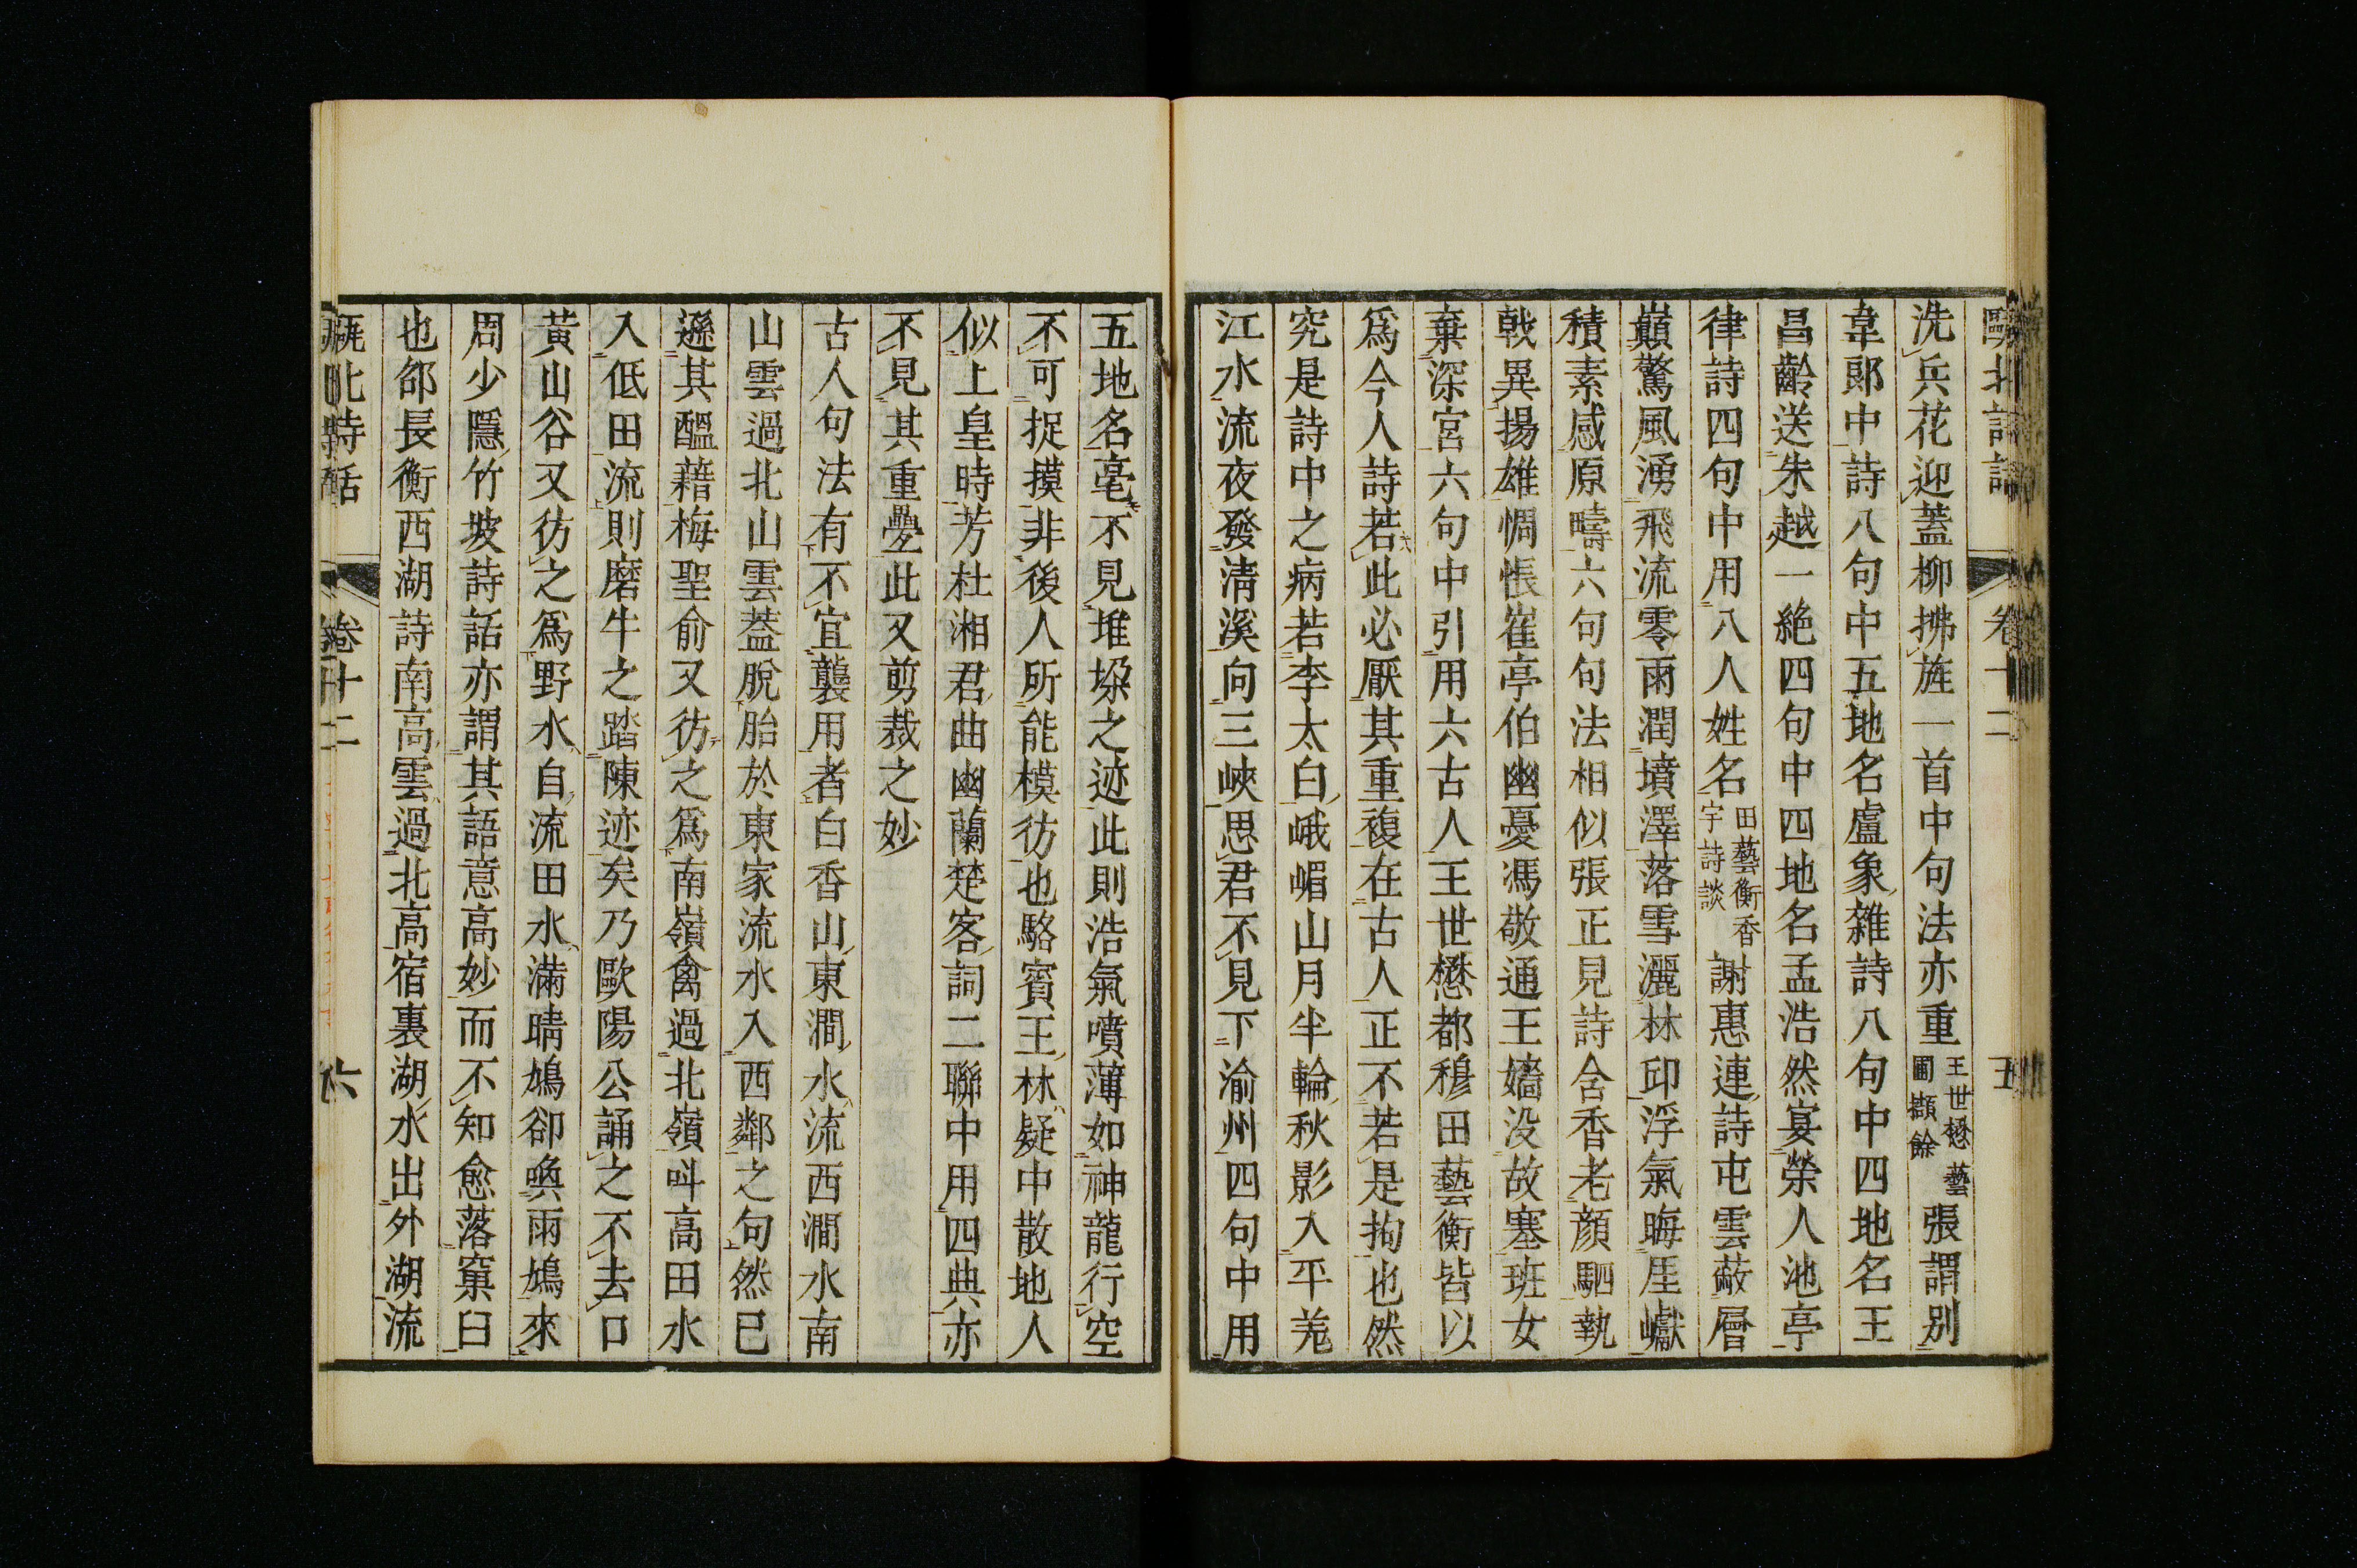 甌北詩話 卷十二 五
洗兵花迎蓋柳拂旌一首中句法亦重王世懋藝圃擷餘張謂別
韋郎中詩八句中五地名盧象雜詩八句中四地名王
昌齡送朱越一絶四句中四地名孟浩然宴榮人池亭
律詩四句中用八人姓名田藝衡香宇詩談謝惠連詩屯雲蔽層
巔驚風湧飛流零雨潤墳澤落雪灑林邱浮氣晦厓巘
積素感原疇六句句法相似張正見詩含香老顏駟執
戟異揚雄惆悵崔亭伯幽憂馮敬通王嬙没故塞班女
棄深宮六句中引用六古人王世懋都穆田藝衡皆以
爲今人詩若此必厭其重複在古人正不若是拘也然
究是詩中之病若李太白峨嵋山月半輪秋影入平羌
江水流夜發清溪向三峽思君不見下渝州四句中用
五地名毫不見堆垛之迹此則浩氣噴薄如神龍行空
不可捉摸非後人所能模彷也駱賓王林疑中散地人
似上皇時芳杜湘君曲幽蘭楚客詞二聯中用四典亦
不見其重疊此又剪裁之妙
古人句法有不宜襲用者白香山東澗水流西澗水南
山雲過北山雲葢脫胎於東家流水入西鄰之句然已
遜其醞藉梅聖俞又彷之爲南嶺禽過北嶺呌高田水
入低田流則磨牛之踏陳迹矣乃歐陽公誦之不去口
黃山谷又彷之爲野水自流田水滿晴鳩卻喚雨鳩來
周少隱竹坡詩話亦謂其語意高妙而不知愈落窠臼
也邵長衡西湖詩南高雲過北高宿裏湖水出外湖流
甌北詩話 卷十二 六